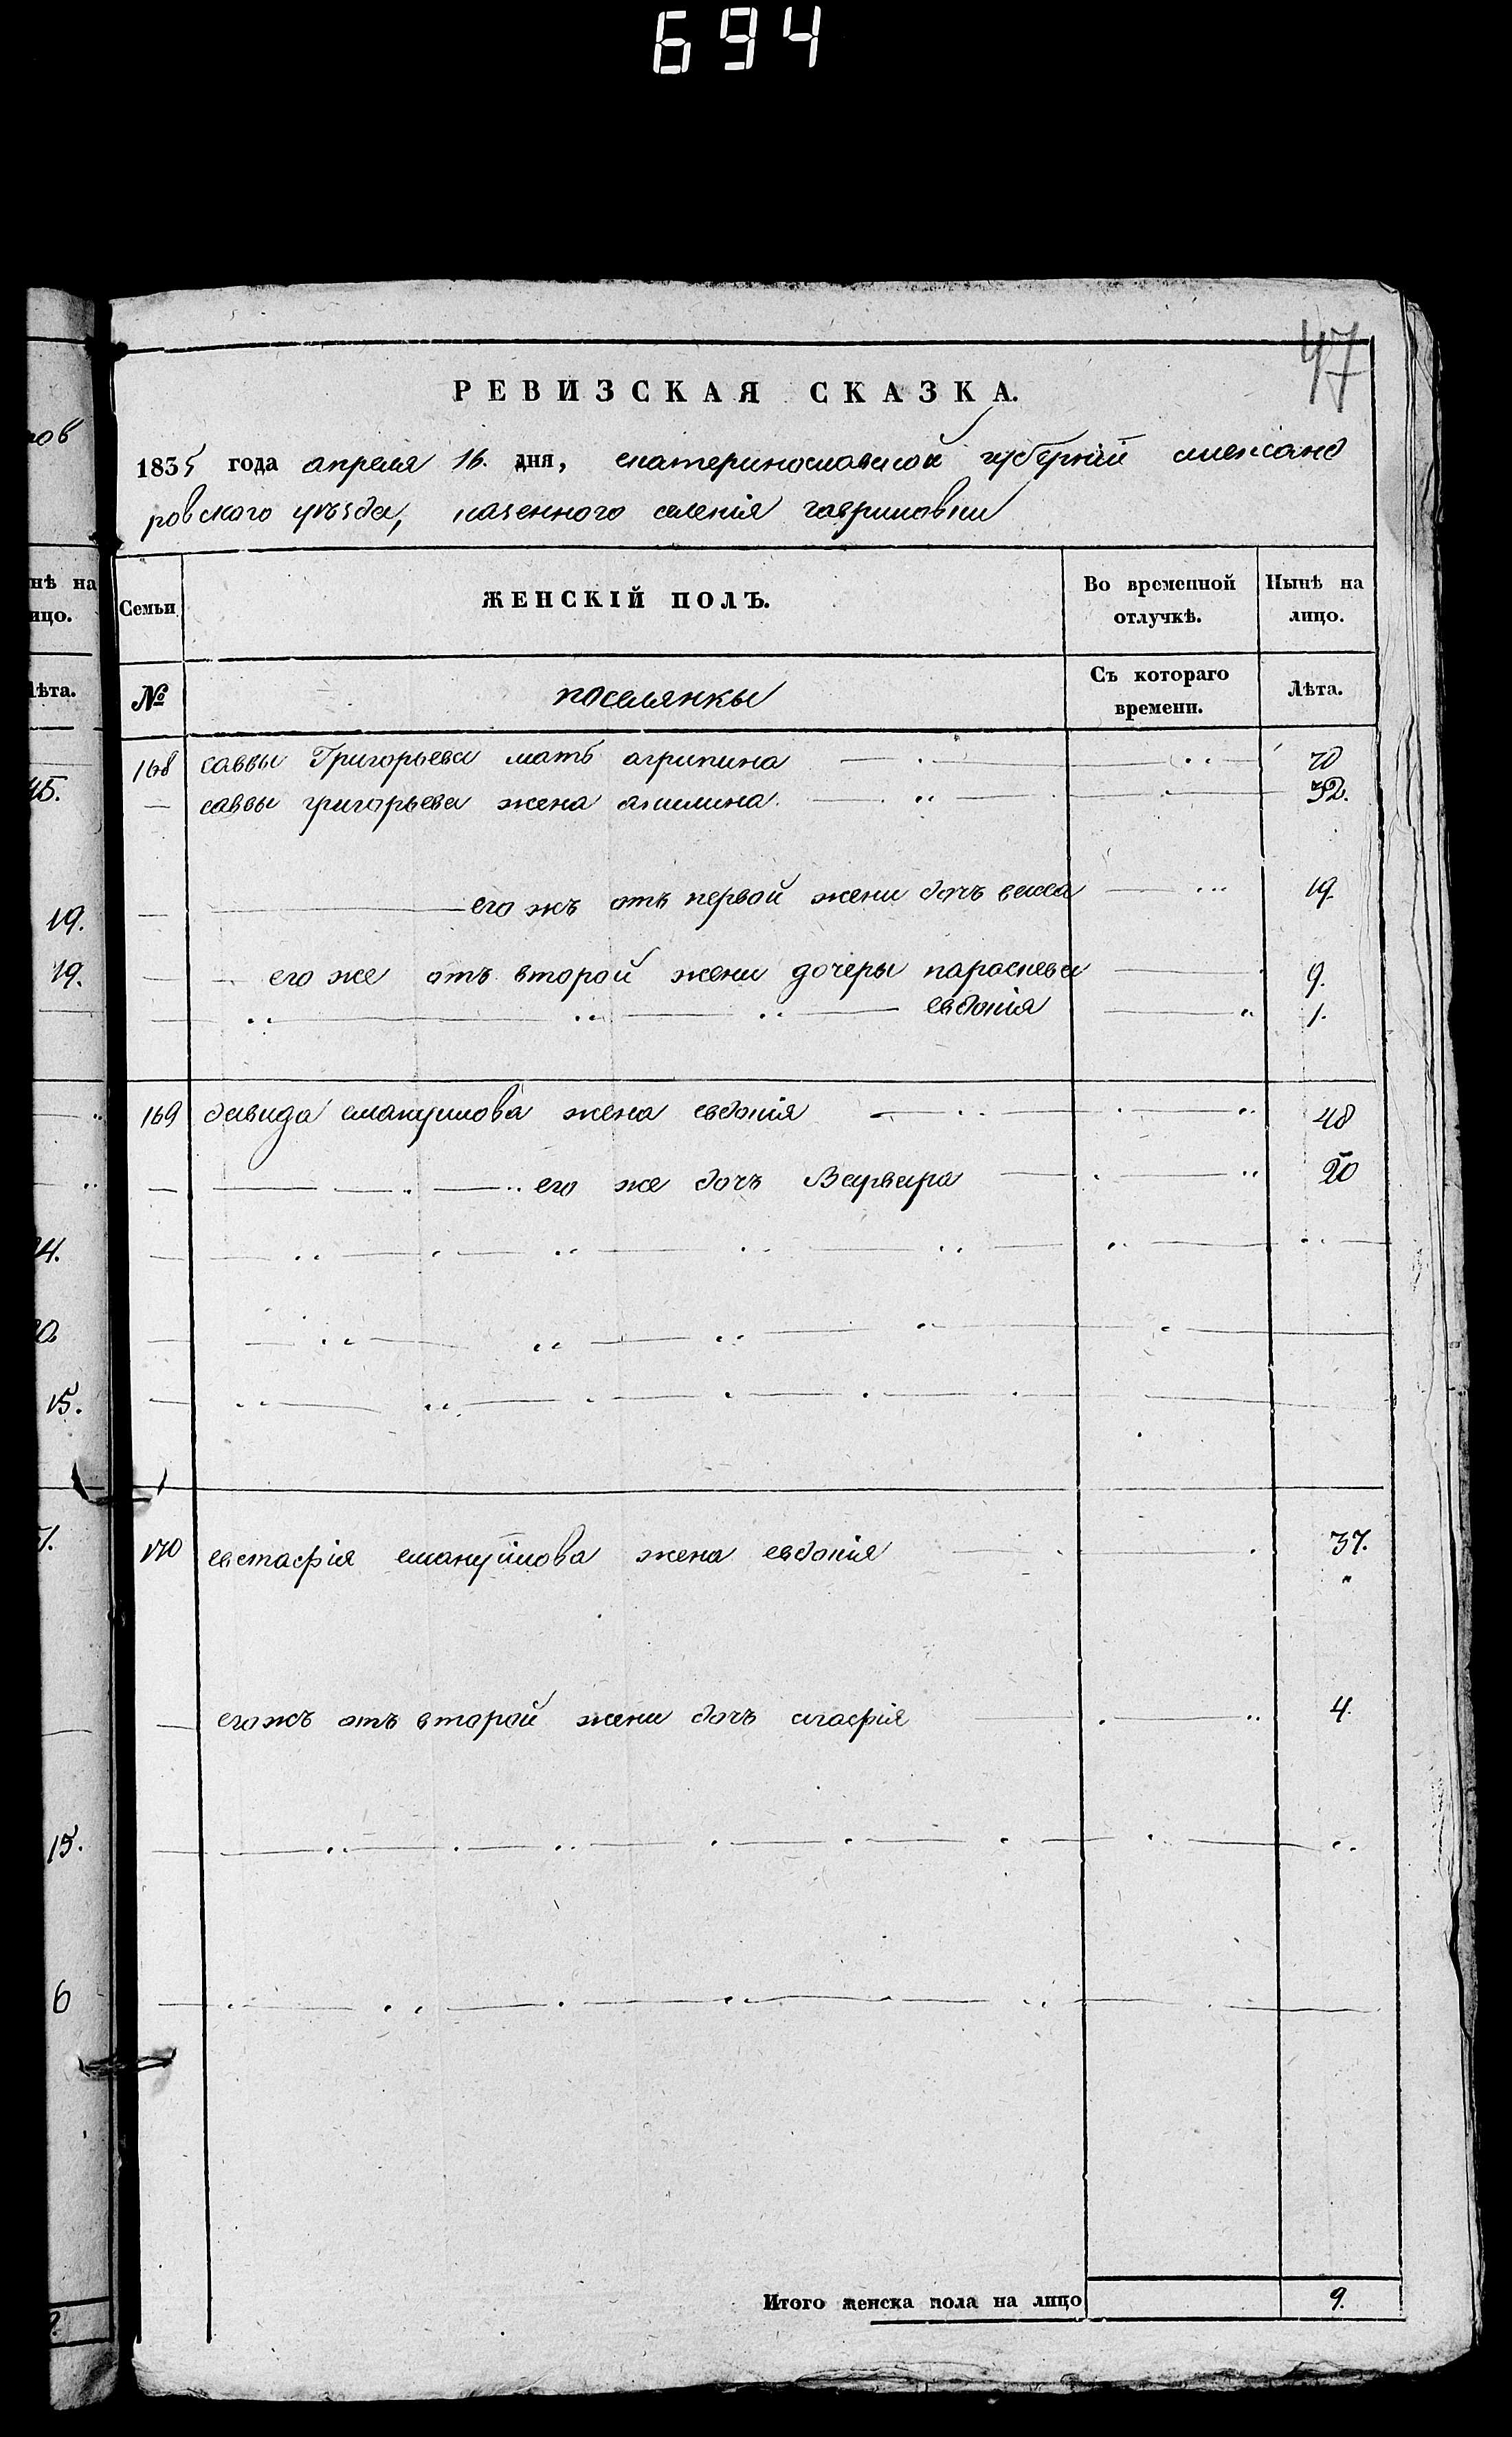 694
47
РЕВИЗСКАЯ СКАЗКА.
1835 года апреля 16. дня, екатеринославской губернiи александ
ровского уѣзда, казенного селенiя гавриловки
Семьи
ЖЕНСКІЙ ПОЛЪ.
Во временной отлучкѣ.
Нынѣ на лицо.
№
поселянкы
Съ котораго времени.
Лѣта.
168 саввы Григорьева мать агрипина 70
саввы григорьева жена акилина. 32.
его жъ отъ первой жени дочъ векла 19.
его же отъ второй жени дочеры параскева 9.
евдокiя 1.
169 давида емануилова жена евдокiя 48
его же дочъ Варвара 20
170 евстафiя емануйлова жена евдокiя 37.
его жъ отъ второй жени дочъ агафiя 4.
Итого женска пола на лицо 9.
нѣ на
ицо.
Лѣта.
45.
19.
19.
15.
15.
6